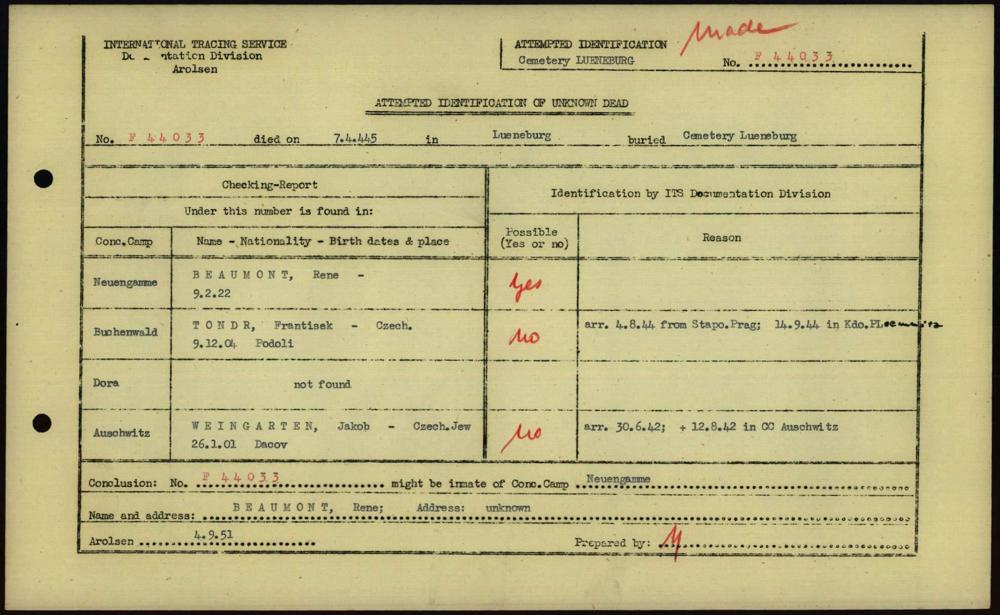 Made
INTERNATIONAL TRACING SERVICE
Documentation Division
Arolsen
ATTEMPTED IDENTIFICATION
Cemetery LUENEBURG No. F 44033
ATTEMPTED IDENTIFICATION OF UNKNOWN DEAD
No. F 44033 died on 7.4.445 in Lueneburg buried Cemetery Lueneburg
Checking-Report
Under this number is found in:
Identification by ITS Documentation Division
Conc.Camp Name - Nationality - Birth dates & place Possible (Yes or no) Reason
Neuengamme BEAUMONT, Rene - Yes
9.2.22
Buchenwald TONDR, Frantisek - Czech. No arr. 4.8.44 from Stapo.Prag; 14.9.44 in Kdo.
9.12.04 Podoli
Dora not found
Auschwitz WEINGARTEN, Jakob - Czech.Jew No arr. 30.6.42; + 12.8.42 in CC Auschwitz
26.1.01 Dacov
Conclusion: No. F 44033 might be inmate of Conc.Camp Neuengamme
Name and address: BEAUMONT, Rene; Address: unknown
Arolsen 4.9.51 Prepared by: